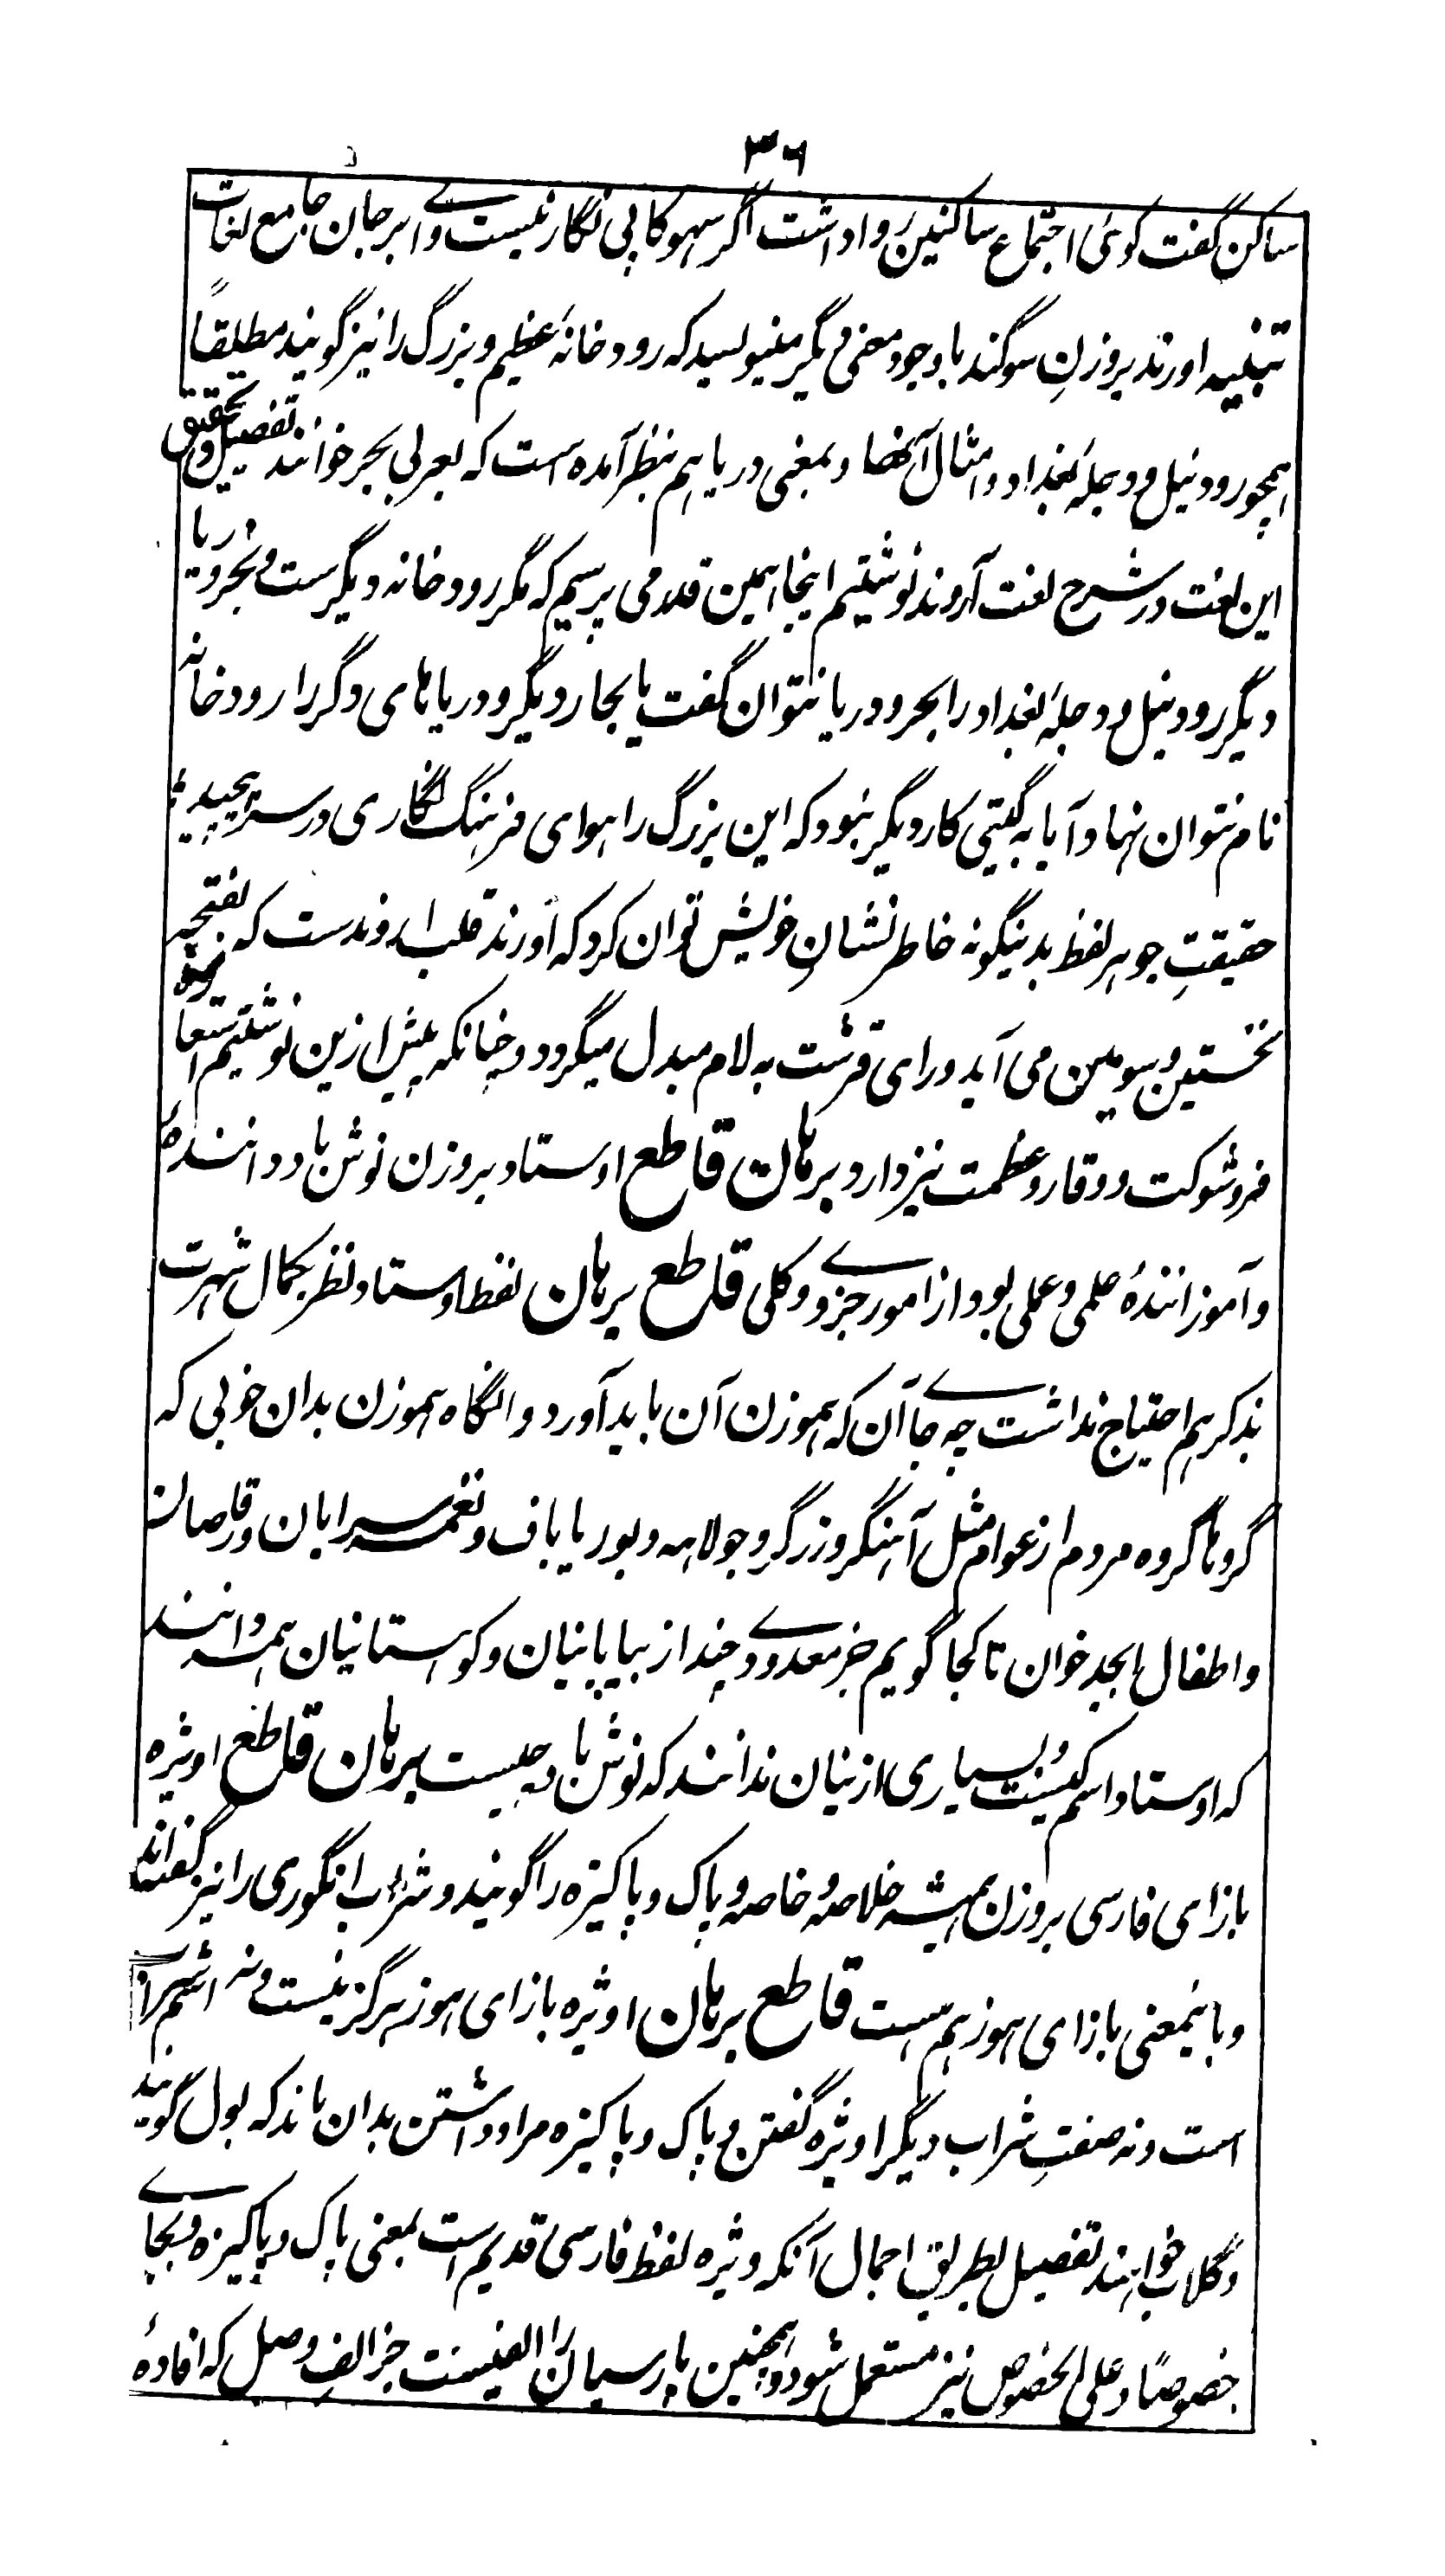 ۳۶
ساکن گفت گوئی اجتماع ساکنین روا داشت اگر سهو کاپی نگار نیست وای بر جان جامع لغات
تنبیه اورند بروزنِ سوگند با وجود معنی دیگر مینویسد که رود خانهٔ عظیم و بزرگ را نیز گویند مطلقاً
همچو رود نیل و دجلهٔ بغداد و امثال آنها و بمعنی دریا هم بنظر آمده است که بعربی بحر خوانند تفصیل و تحقیق
این لغت در شرح لغت آروند نوشتیم اینجا همین قدر می پرسیم که مگر رود خانه دیگرست و بحر و دریا
دیگر رود نیل و دجلهٔ بغداد را بحر و دریا نتوان گفت یا بحار دیگر و دریاهای دگر را رود خانه
نام نتوان نهاد آیا به گیتی کار دیگر نبود که این بزرگ را هوای فرهنگ نگاری در سر پیچید
حقیقتِ جوهر لفظ بدینگونه خاطر نشانِ خویش توان کرد که اورند قلب اروندست که بفتحهٔ
نخستین و سومین می آید و رای قرشت به لام مبدل میگردد و چنانکه پیش ازین نوشتیم
فر و شوکت و وقار و عظمت نیز دارد برهان قاطع اوستاد بروزن نوش باد دانندهٔ
و آموزانندهٔ علمی و عملی بود از امور جزوی و کلی قاطع برهان لفظ اوستاد نظر بکمال شهرت
بذکر هم احتیاج نداشت چه جای آن که هموزن آن باید آورد و انگاه هموزن بدان خوبی که
گروها گروه مردم از عوام مثل آهنگر و زرگر و جولاهه و بوریا باف و نغمه سرایان و رقاصان
و اطفال ابجد خوان تا کجا گویم جز معدودی چند از بیابانیان و کوهستانیان همه دانند
که اوستاد اسم کیست و بسیاری ازینان ندانند که نوش باد چیست برهان قاطع اویژه
بازای فارسی بروزن همیشه خلاصه و خاصه و پاک و پاکیزه را گویند و شراب انگوری را نیز گفته اند
و باینمعنی بازای هوز هم هست قاطع برهان اویژه بازای هوز هرگز نیست و نه اسم شراب
است و نه صفتِ شراب دیگر اویژه گفتن و پاک و پاکیزه مراد داشتن بدان ماند که بول گویند
و گلاب خواهند تفصیل بطریق اجمال آنکه ویژه لفظ فارسی قدیم است بمعنی پاک و پاکیزه و بجای
خصوصًا و علی الخصوص نیز مستعمل شود و همچنین پارسیان را الفیست جز الفِ وصل که افادهٔ